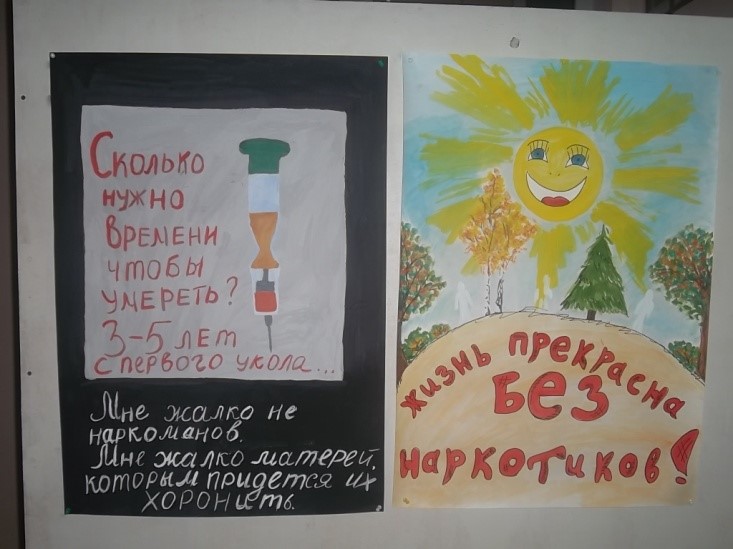 Сколько
нужно
времени
чтобы
умереть?
3-5 лет
с первого укола...
Мне жалко не
наркоманов.
Мне жалко матерей,
которым придется их
хоронить.
жизнь прекрасна
без
наркотиков!